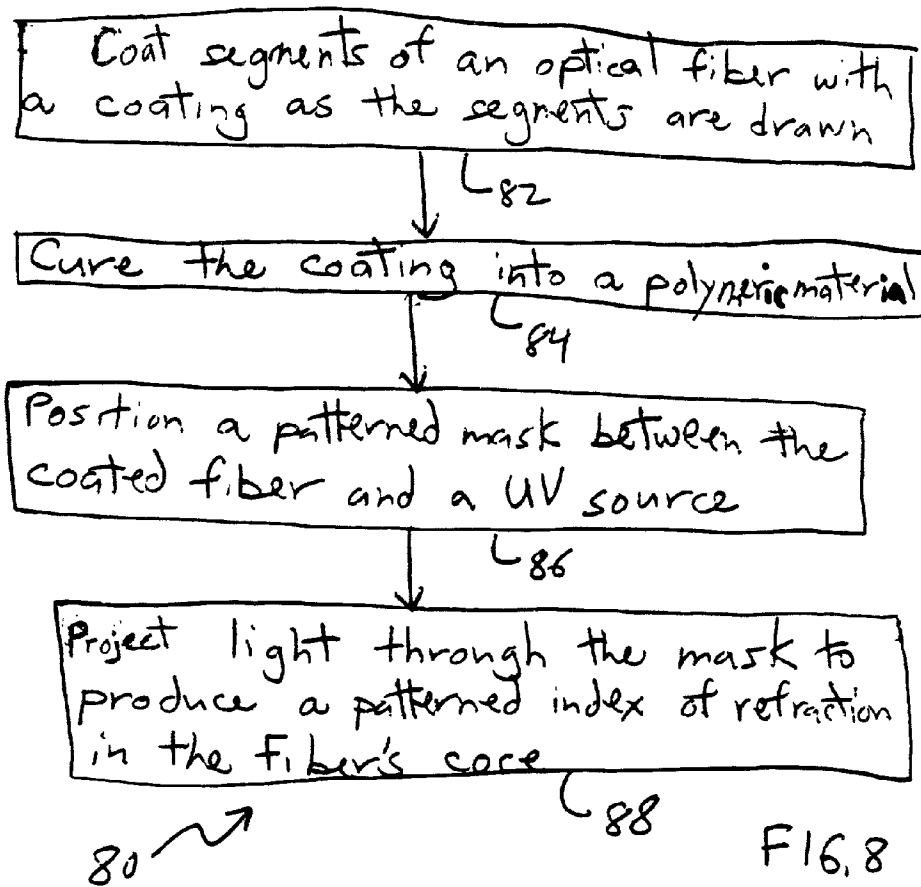 Coat segments of an optical fiber with
a coating as the segments are drawn
82
Cure the coating into a polymeric material
84
Position a patterned mask between the
coated fiber and a UV source
86
Project light through the mask to
produce a patterned index of refraction
in the fiber's core
88
80
FIG. 8